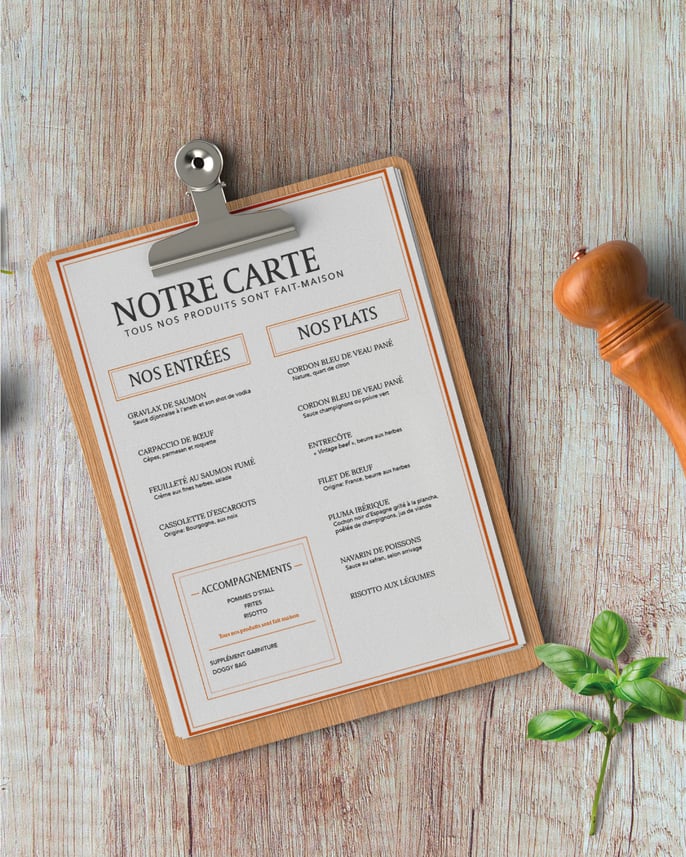 NOTRE CARTE
TOUS NOS PRODUITS SONT FAIT-MAISON
NOS ENTRÉES
GRAVLAX DE SAUMON
Sauce dijonnaise à l'aneth et son shot de vodka
CARPACCIO DE BŒUF
Cêpes, parmesan et roquette
FEUILLETÉ AU SAUMON FUMÉ
Crème aux fines herbes, salade
CASSOLETTE D'ESCARGOTS
Origine: Bourgogne, aux noix
ACCOMPAGNEMENTS
POMMES D'STALL
FRITES
RISOTTO
Tous nos produits sont fait maison
SUPPLÉMENT GARNITURE
DOGGY BAG
NOS PLATS
CORDON BLEU DE VEAU PANÉ
Nature, quart de citron
CORDON BLEU DE VEAU PANÉ
Sauce champignons ou poivre vert
ENTRECÔTE
« Vintage beef », beurre aux herbes
FILET DE BŒUF
Origine: France, beurre aux herbes
PLUMA IBÉRIQUE
Cochon noir d'Espagne grillé à la plancha,
poêlée de champignons, jus de viande
NAVARIN DE POISSONS
Sauce au safran, selon arrivage
RISOTTO AUX LÉGUMES